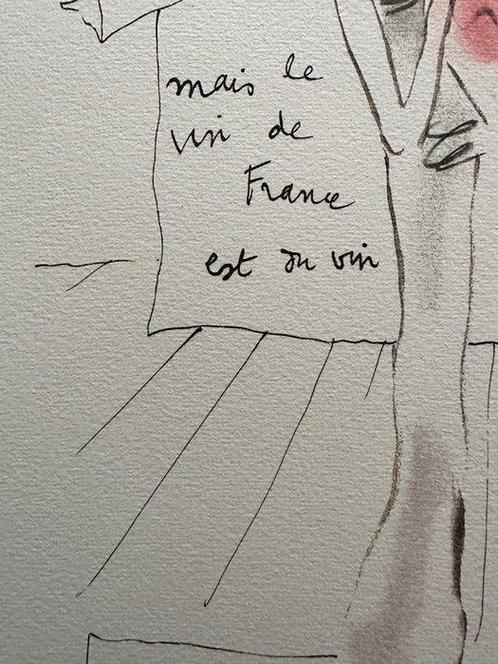 mais le
vin de
France
est du vin